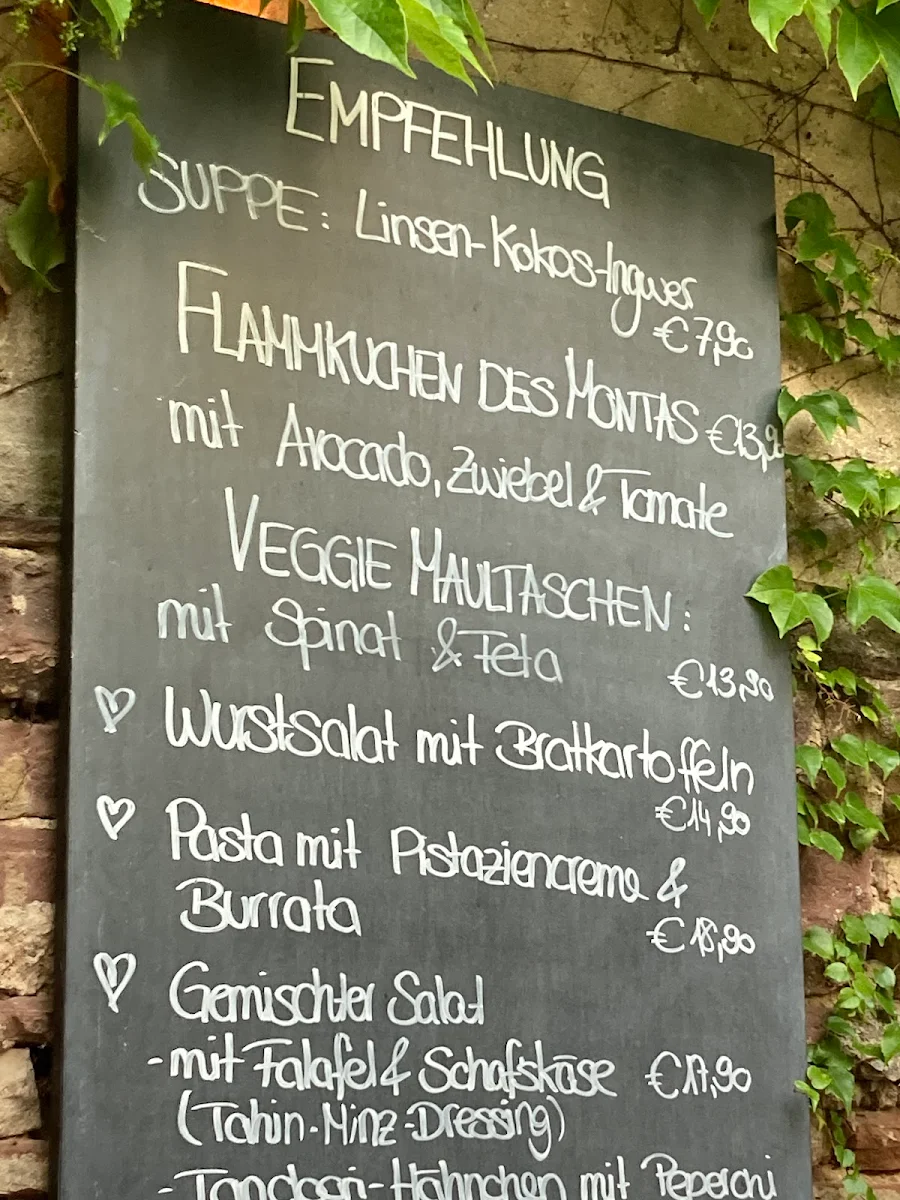 EMPFEHLUNG
SUPPE: Linsen-Kokos-Ingwer
€7,90
FLAMMKUCHEN DES MONTAS €13,9
mit Avocado, Zwiebel & Tomate
VEGGIE MAULTASCHEN:
mit Spinat & Feta
€13,90
Wurstsalat mit Bratkartoffeln
€14,90
Pasta mit Pistaziencreme &
Burrata
€18,90
Gemischter Salat
-mit Falafel & Schafskäse €17,90
(Tahin-Minz-Dressing)
-Tandoori-Hähnchen mit